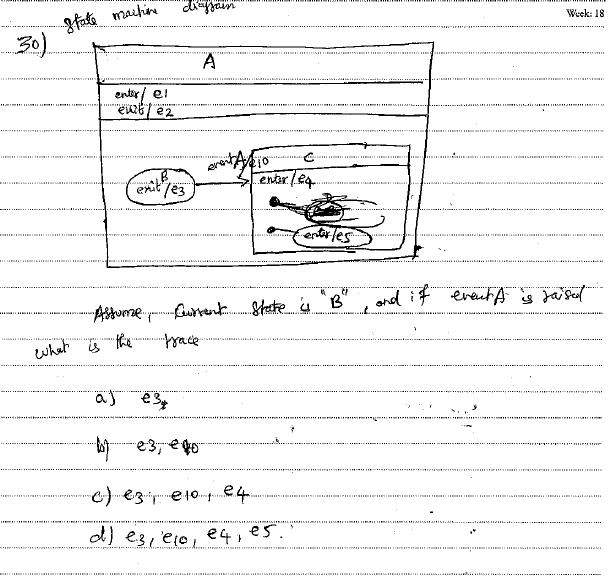 State machine diagram
Week: 18
30)
A
enter/ e1
exit/ e2
eventA/e10
C
B
exit/e3
enter/e4
enter/e5
Assume, Current State is "B", and if eventA is raised
what is the trace
a) e3
b) e3, e10
c) e3, e10, e4
d) e3, e10, e4, e5.